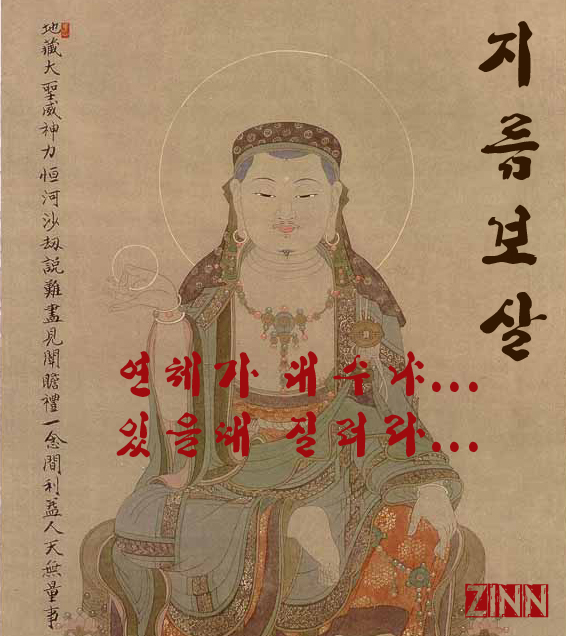 地藏大聖威神力恒河沙劫說難盡見聞瞻禮一念間利益人天無量事
지름보살
연체가 대수냐...
있을때 질러라...
ZINN